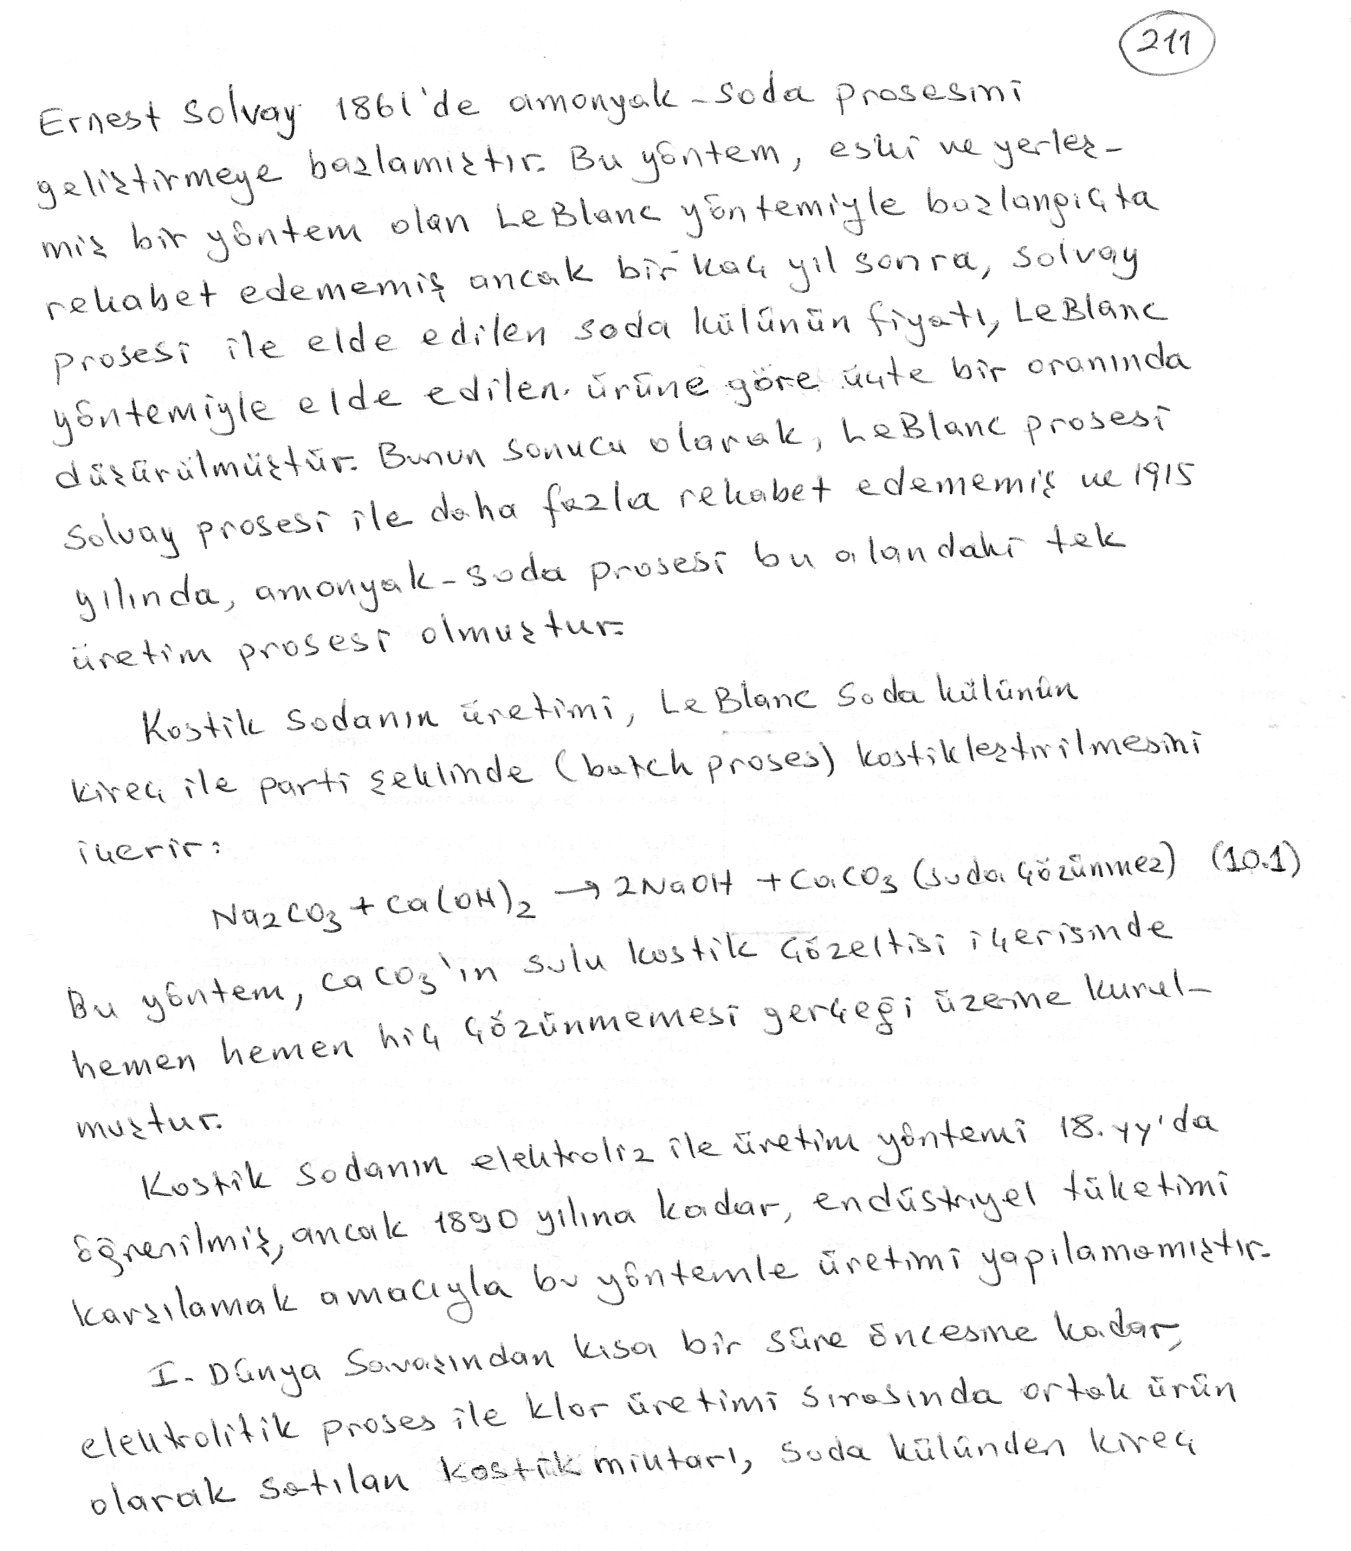 211
Ernest Solvay 1861'de amonyak-soda prosesini
geliştirmeye başlamıştır. Bu yöntem, eski ve yerleş-
miş bir yöntem olan LeBlanc yöntemiyle başlangıçta
rekabet edememiş ancak bir kaç yıl sonra, Solvay
prosesi ile elde edilen soda külünün fiyatı, LeBlanc
yöntemiyle elde edilen ürüne göre üçte bir oranında
düşürülmüştür. Bunun sonucu olarak, LeBlanc prosesi
Solvay prosesi ile daha fazla rekabet edememiş ve 1915
yılında, amonyak-soda prosesi bu alandaki tek
üretim prosesi olmuştur.
Kostik sodanın üretimi, LeBlanc soda külünün
kireç ile parti şeklinde (batch proses) kostikleştirilmesini
içerir:
Na2CO3 + Ca(OH)2 → 2NaOH + CaCO3 (suda çözünmez) (10.1)
Bu yöntem, CaCO3'ın sulu kostik çözeltisi içerisinde
hemen hemen hiç çözünmemesi gerçeği üzerine kurul-
muştur.
Kostik sodanın elektroliz ile üretim yöntemi 18. yy'da
öğrenilmiş, ancak 1890 yılına kadar, endüstriyel tüketimi
karşılamak amacıyla bu yöntemle üretimi yapılamamıştır.
I. Dünya Savaşından kısa bir süre öncesine kadar,
elektrolitik proses ile klor üretimi sırasında ortak ürün
olarak satılan kostik miktarı, soda külünden kireç